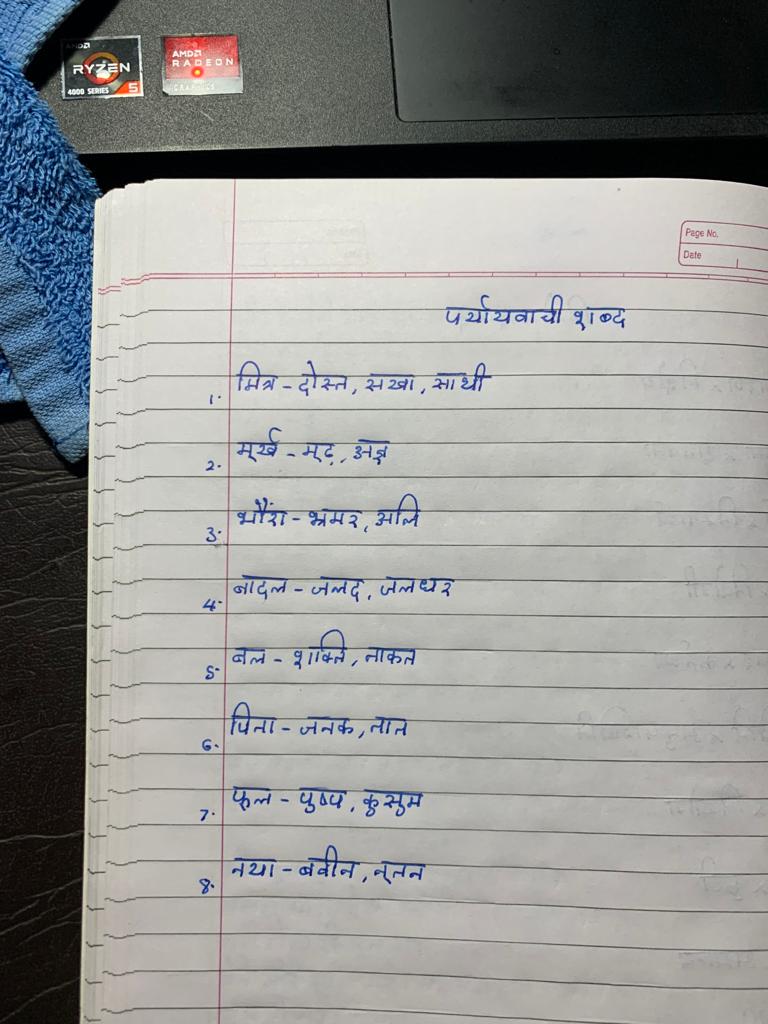 AMD
RYZEN
4000 SERIES 5
AMD
RADEON
GRAPHICS
Page No.
Date
पर्यायवाची शब्द
1. मित्र - दोस्त, सखा, साथी
2. मूर्ख - मूढ़, अज्ञ
3. भौंरा - भ्रमर, अलि
4. बादल - जलद, जलधर
5. बल - शक्ति, ताकत
6. पिता - जनक, तात
7. फूल - पुष्प, कुसुम
8. नया - बवीन, नूतन